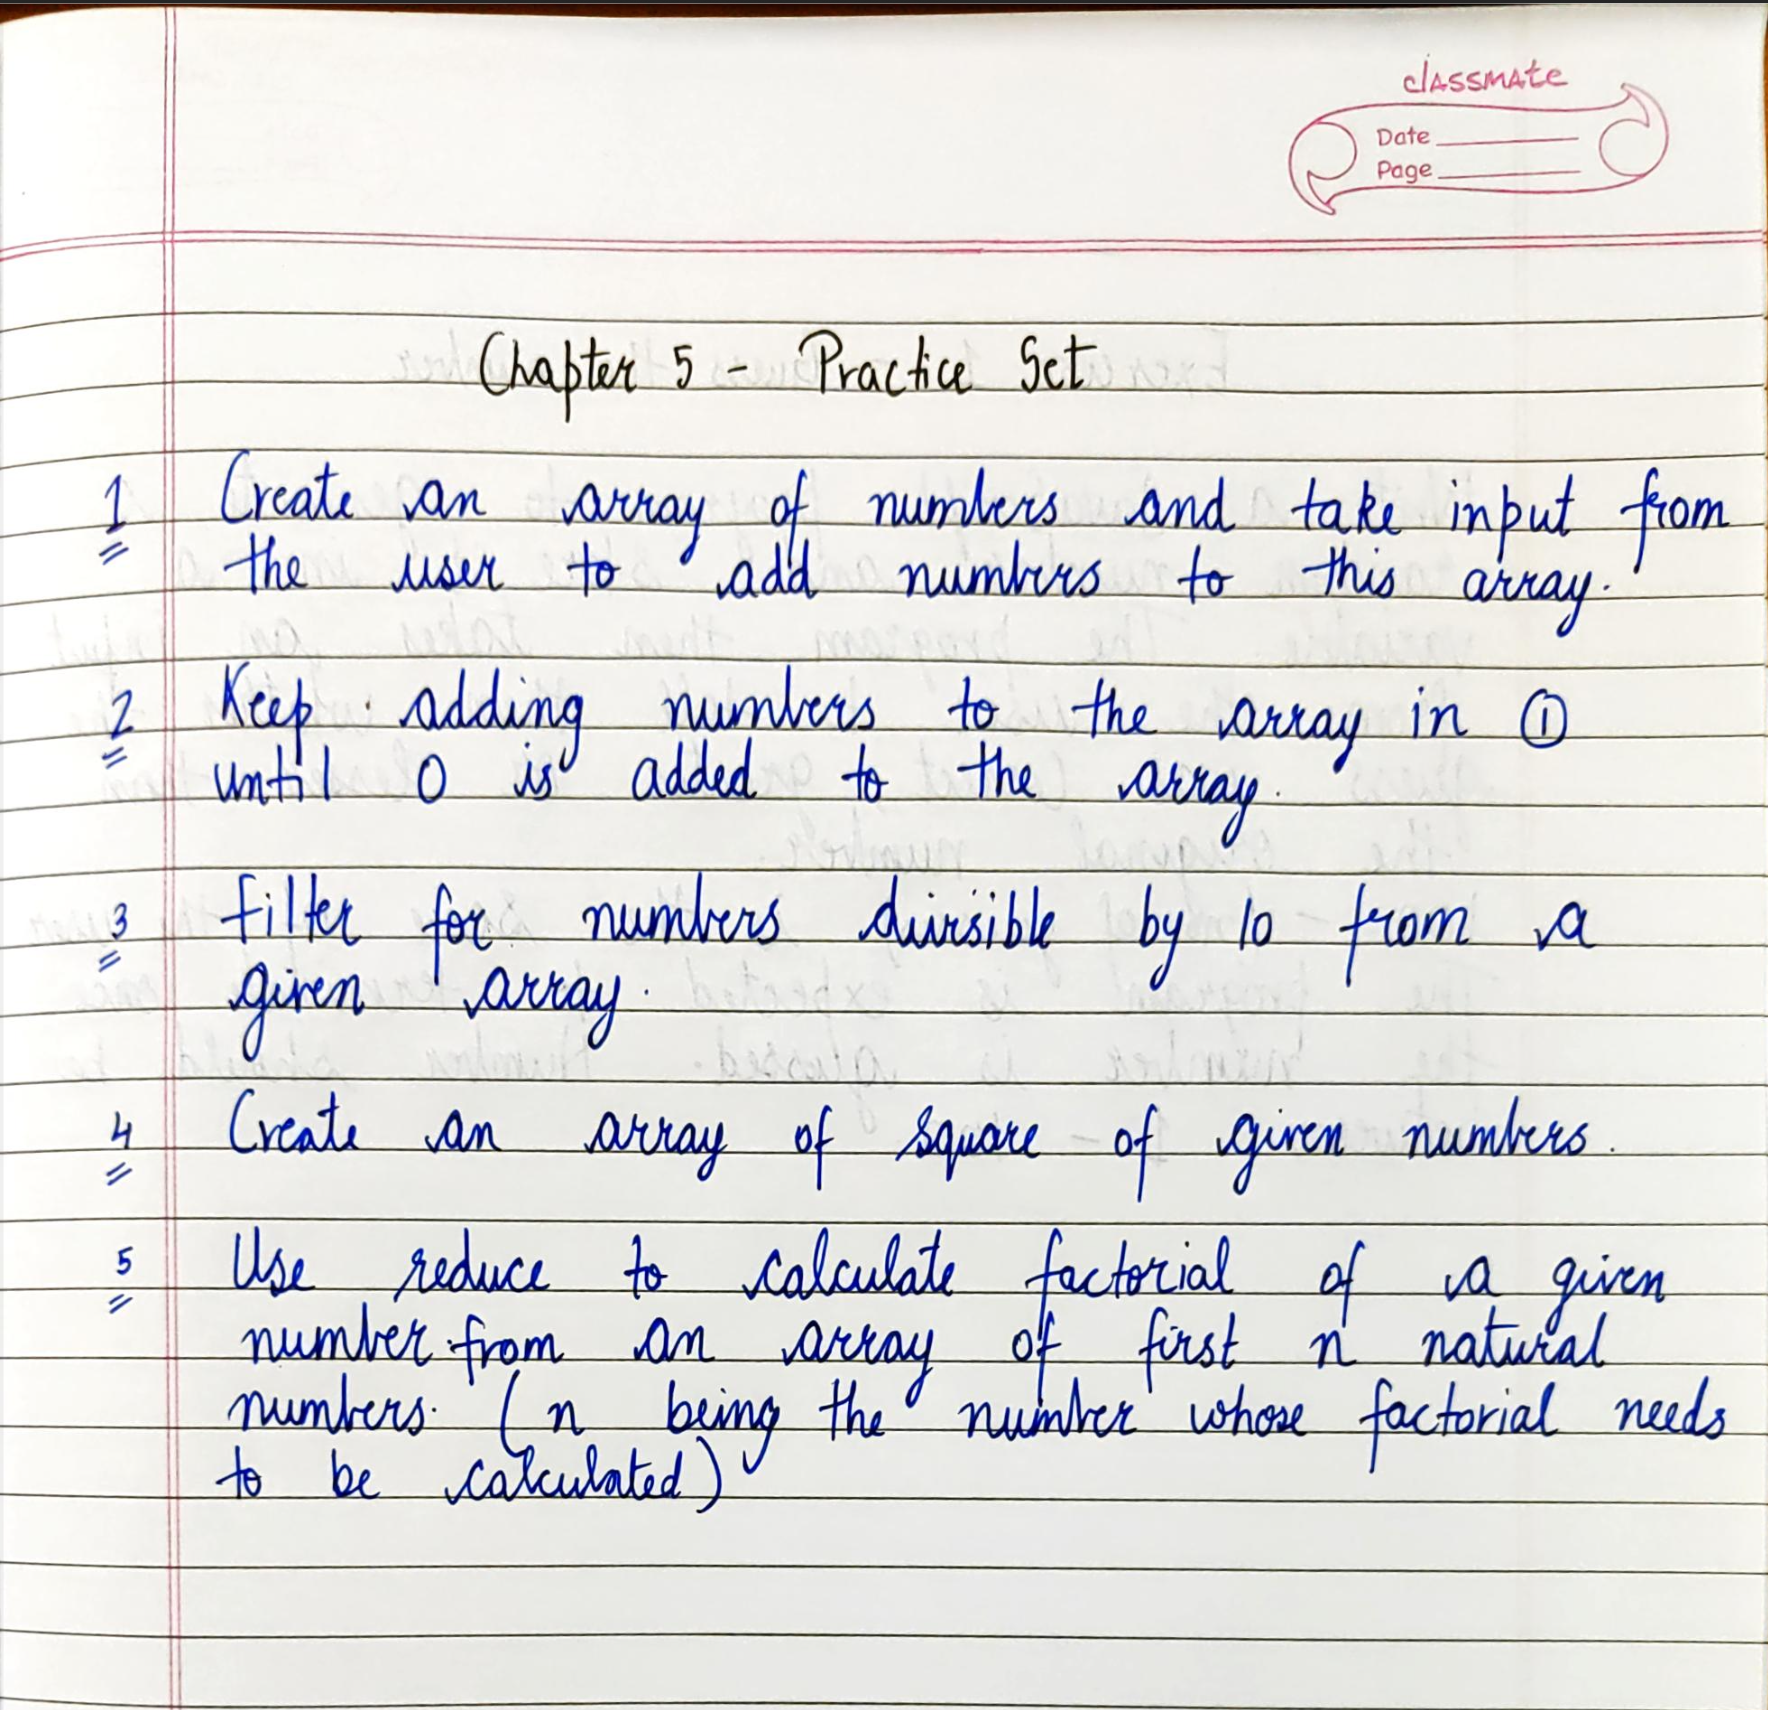 classmate
Date
Page
Chapter 5 - Practice Set
1 Create an array of numbers and take input from
the user to add numbers to this array.
2 Keep adding numbers to the array in ①
until 0 is added to the array.
3 filter for numbers divisible by 10 from a
given array.
4 Create an array of square of given numbers.
5 Use reduce to calculate factorial of a given
number from an array of first n natural
numbers. (n being the number whose factorial needs
to be calculated)